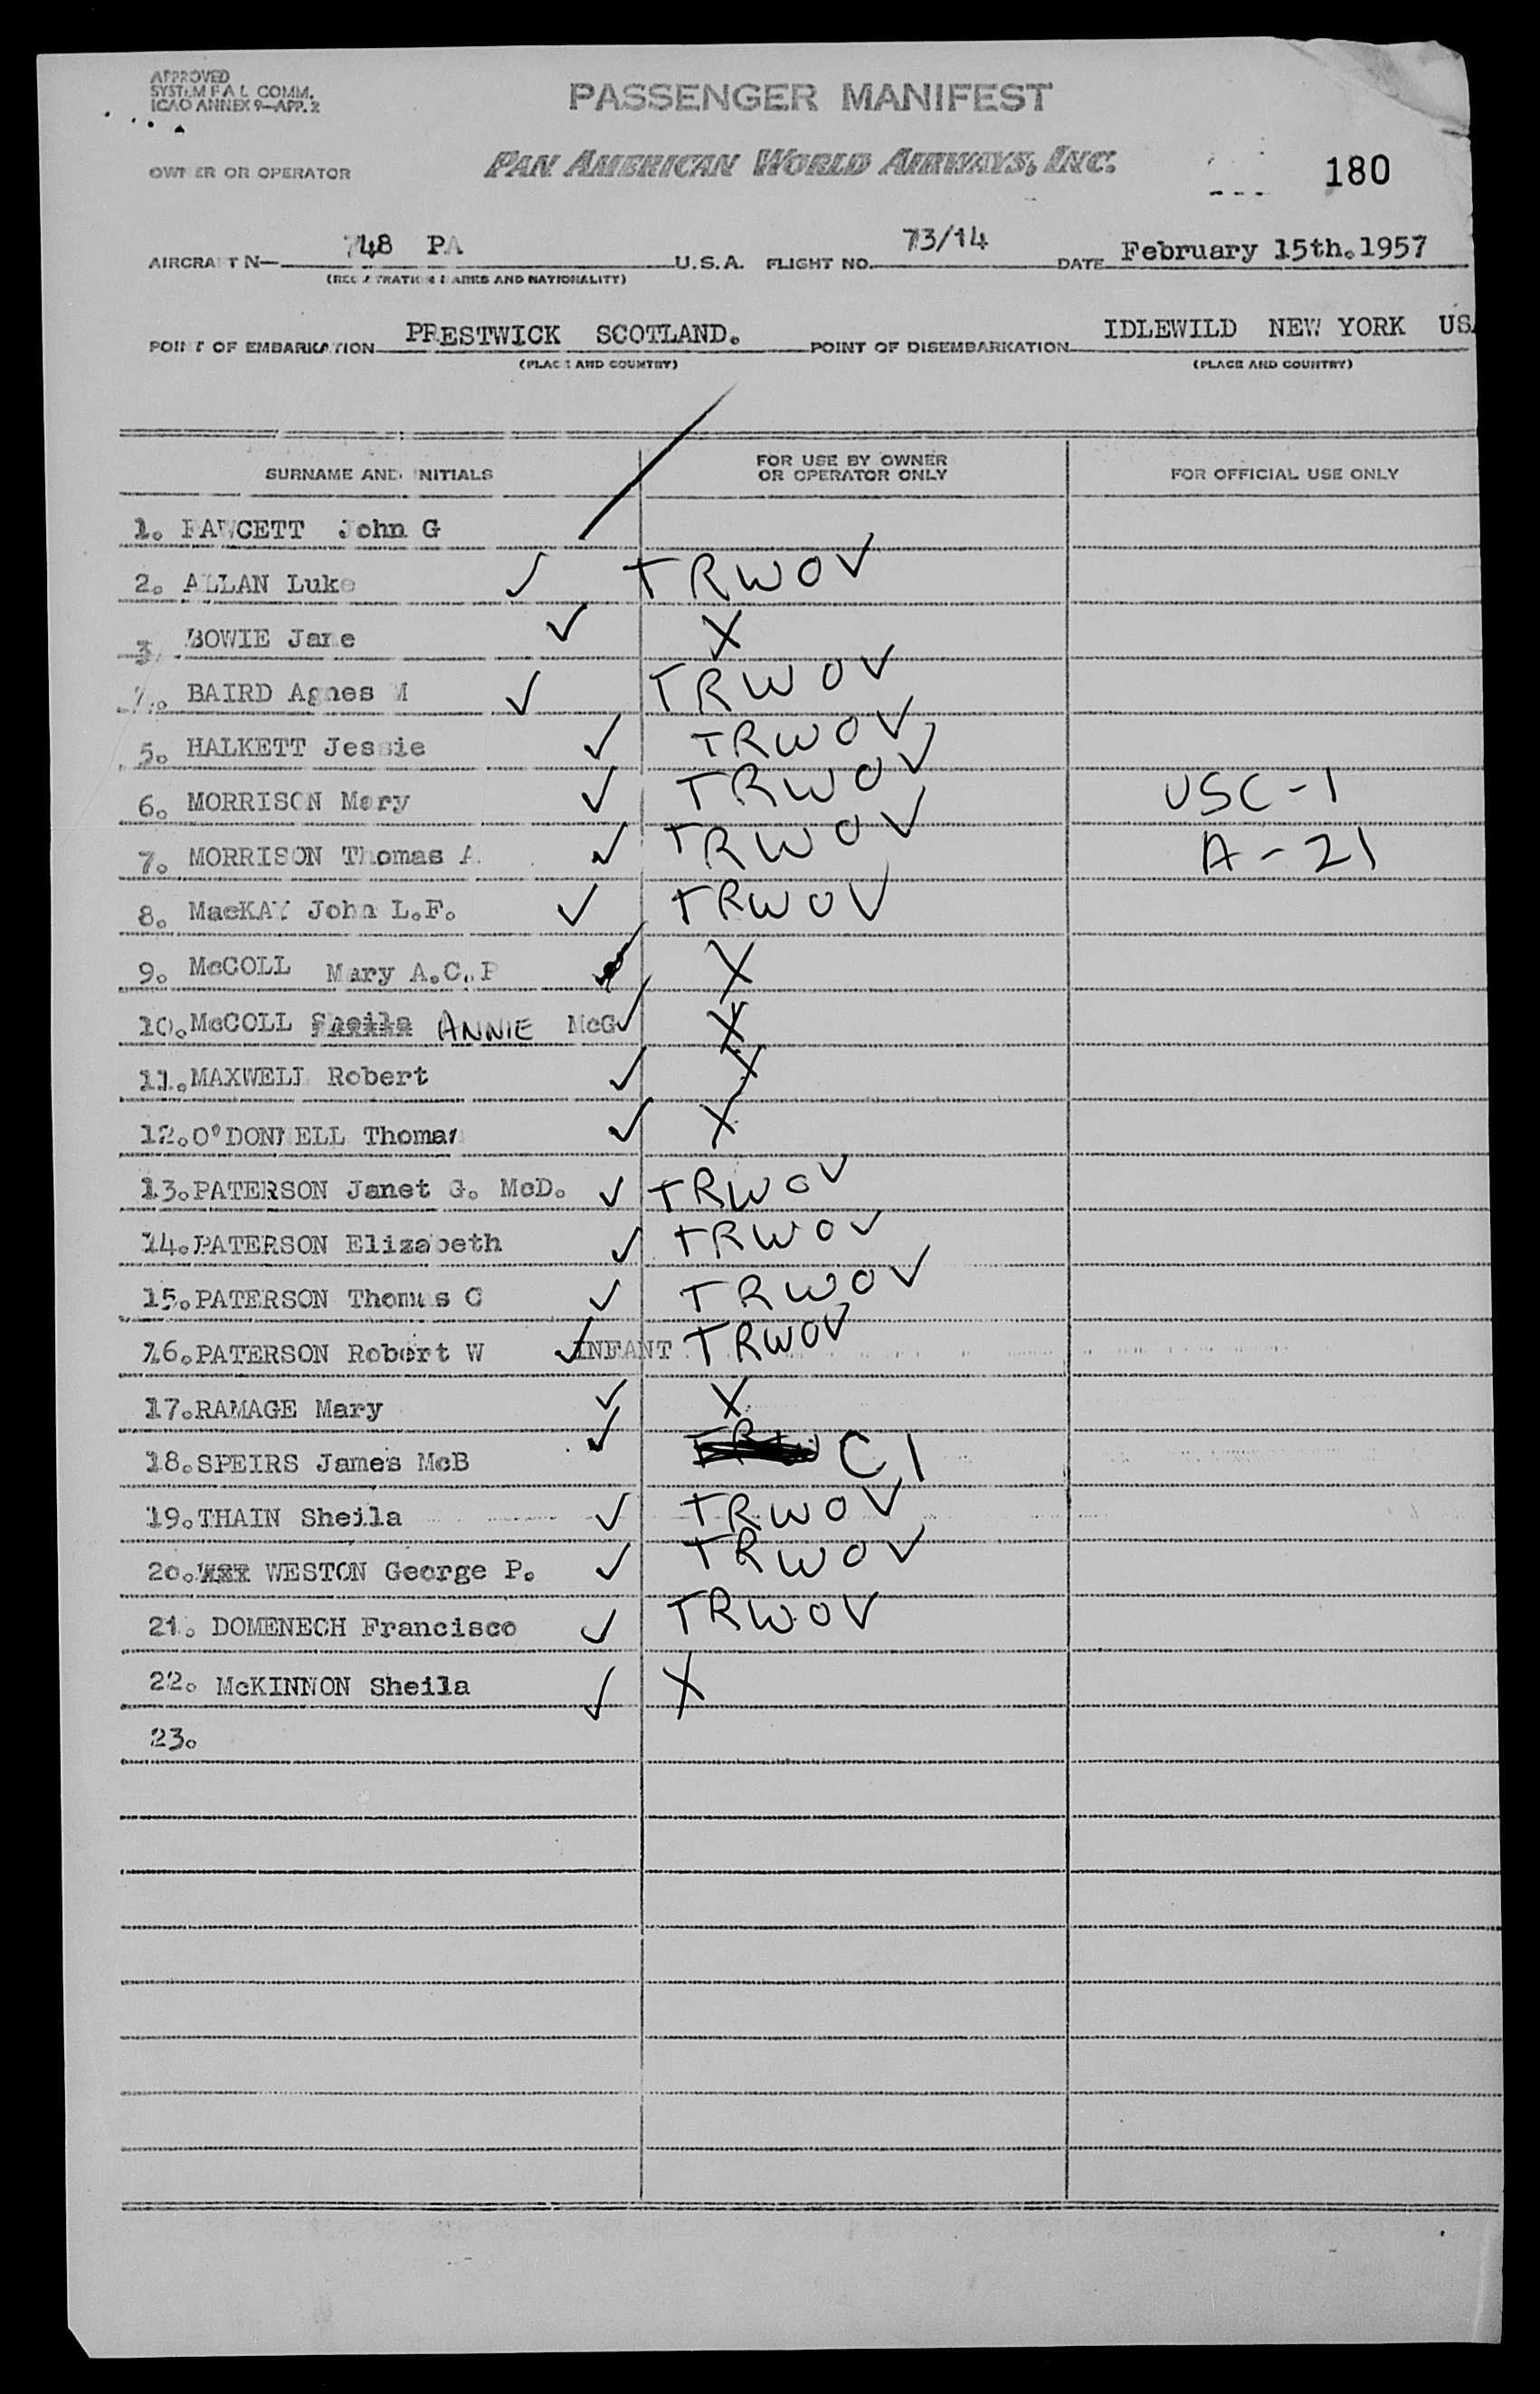 APPROVED
SYSTEM F A L COMM.
ICAO ANNEX 9—APP. 2
PASSENGER MANIFEST
OWNER OR OPERATOR PAN AMERICAN WORLD AIRWAYS, INC. 180
AIRCRAFT N— 748 PA U.S.A. FLIGHT NO. 73/14 DATE February 15th.1957
(REGISTRATION MARKS AND NATIONALITY)
POINT OF EMBARKATION PRESTWICK SCOTLAND. POINT OF DISEMBARKATION IDLEWILD NEW YORK USA
(PLACE AND COUNTRY) (PLACE AND COUNTRY)
SURNAME AND INITIALS FOR USE BY OWNER OR OPERATOR ONLY FOR OFFICIAL USE ONLY
1. FAWCETT John G
2. ALLAN Luke ✓ TRWOV
3. BOWIE Jane ✓ X
4. BAIRD Agnes M ✓ TRWOV
5. HALKETT Jessie ✓ TRWOV
6. MORRISON Mary ✓ TRWOV USC-1
7. MORRISON Thomas A. ✓ TRWOV A-21
8. MacKAY John L.F. ✓ TRWOV
9. McCOLL Mary A.C.P ✓ X
10. McCOLL Sheila ANNIE McG ✓ X
11. MAXWELL Robert ✓ X
12. O'DONNELL Thomas ✓ X
13. PATERSON Janet G. McD. ✓ TRWOV
14. PATERSON Elizabeth ✓ TRWOV
15. PATERSON Thomas C ✓ TRWOV
16. PATERSON Robert W ✓ INFANT TRWOV
17. RAMAGE Mary ✓ X
18. SPEIRS James McB ✓ C1
19. THAIN Sheila ✓ TRWOV
20. WESTON George P. ✓ TRWOV
21. DOMENECH Francisco ✓ TRWOV
22. McKINNON Sheila ✓ X
23.